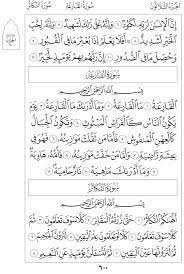 الجزء الثلاثون سورة القارعة سورة التكاثر
إِنَّ ٱلْإِنسَٰنَ لِرَبِّهِۦ لَكَنُودٌ ٦ وَإِنَّهُۥ عَلَىٰ ذَٰلِكَ لَشَهِيدٌ ٧ وَإِنَّهُۥ لِحُبِّ
ٱلْخَيْرِ لَشَدِيدٌ ٨ ۞ أَفَلَا يَعْلَمُ إِذَا بُعْثِرَ مَا فِى ٱلْقُبُورِ ٩
وَحُصِّلَ مَا فِى ٱلصُّدُورِ ١٠ إِنَّ رَبَّهُم بِهِمْ يَوْمَئِذٍ لَّخَبِيرٌ ١١
سُورَةُ القَارِعَةِ
بِسْمِ ٱللَّهِ ٱلرَّحْمَٰنِ ٱلرَّحِيمِ
ٱلْقَارِعَةُ ١ مَا ٱلْقَارِعَةُ ٢ وَمَآ أَدْرَىٰكَ مَا ٱلْقَارِعَةُ ٣
يَوْمَ يَكُونُ ٱلنَّاسُ كَٱلْفَرَاشِ ٱلْمَبْثُوثِ ٤ وَتَكُونُ ٱلْجِبَالُ
كَٱلْعِهْنِ ٱلْمَنفُوشِ ٥ فَأَمَّا مَن ثَقُلَتْ مَوَٰزِينُهُۥ ٦ فَهُوَ فِى
عِيشَةٍ رَّاضِيَةٍ ٧ وَأَمَّا مَنْ خَفَّتْ مَوَٰزِينُهُۥ ٨ فَأُمُّهُۥ هَاوِيَةٌ ٩
وَمَآ أَدْرَىٰكَ مَا هِيَهْ ١٠ نَارٌ حَامِيَةٌۢ ١١
سُورَةُ التَّكَاثُرِ
بِسْمِ ٱللَّهِ ٱلرَّحْمَٰنِ ٱلرَّحِيمِ
أَلْهَىٰكُمُ ٱلتَّكَاثُرُ ١ حَتَّىٰ زُرْتُمُ ٱلْمَقَابِرَ ٢ كَلَّا سَوْفَ تَعْلَمُونَ ٣
ثُمَّ كَلَّا سَوْفَ تَعْلَمُونَ ٤ كَلَّا لَوْ تَعْلَمُونَ عِلْمَ ٱلْيَقِينِ ٥ لَتَرَوُنَّ ٱلْجَحِيمَ ٦
ثُمَّ لَتَرَوُنَّهَا عَيْنَ ٱلْيَقِينِ ٧ ثُمَّ لَتُسْـَٔلُنَّ يَوْمَئِذٍ عَنِ ٱلنَّعِيمِ ٨
٦٠٠